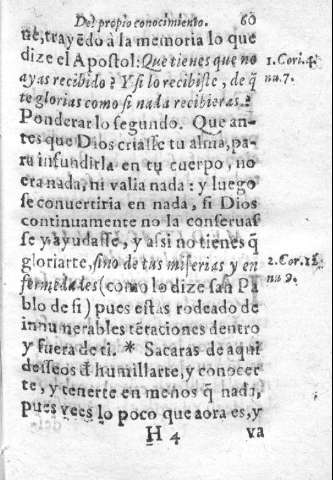 Del propio conocimiento. 60
nẽ, trayẽdo à la memoria lo que
dize el Apostol: Que tienes que no
ayas recibido? Y si lo recibiste, de q̃
te glorias como si nada recibieras?
Ponderar lo segundo. Que an-
tes que Dios criasse tu alma, pa-
ra infundirla en tu cuerpo, no
era nada, ni valia nada: y luego
se conuertiria en nada, si Dios
continuamente no la conseruas
se y ayudasse, y assi no tienes q̃
gloriarte, sino de tus miserias y en
fermedades (como lo dize san Pa
blo de si) pues estas rodeado de
innumerables tẽtaciones dentro
y fuera de ti. * Sacaras de aqui
desseos d̃ humillarte, y conocer
te, y tenerte en menos q̃ nada,
pues vees lo poco que aora es, y
H 4 va
1. Cori. 4.
nu. 7.
2. Cor. 12.
nu. 9.